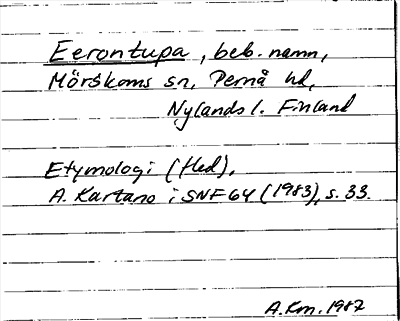 Eerontupa, beb. namn,
Mörskoms sn, Pernå hd,
Nylands l. Finland
Etymologi (fled),
A. Kartano i SNF 64 (1983), s. 33.
A. Km. 1987